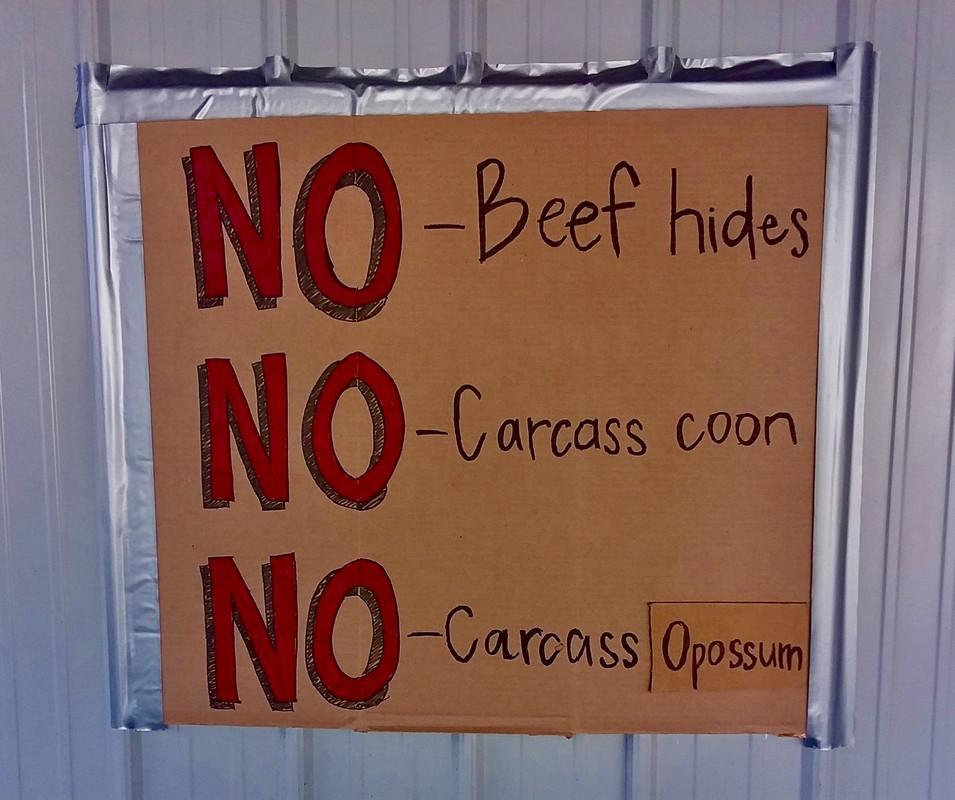 NO -Beef hides
NO -Carcass coon
NO -Carcass Opossum